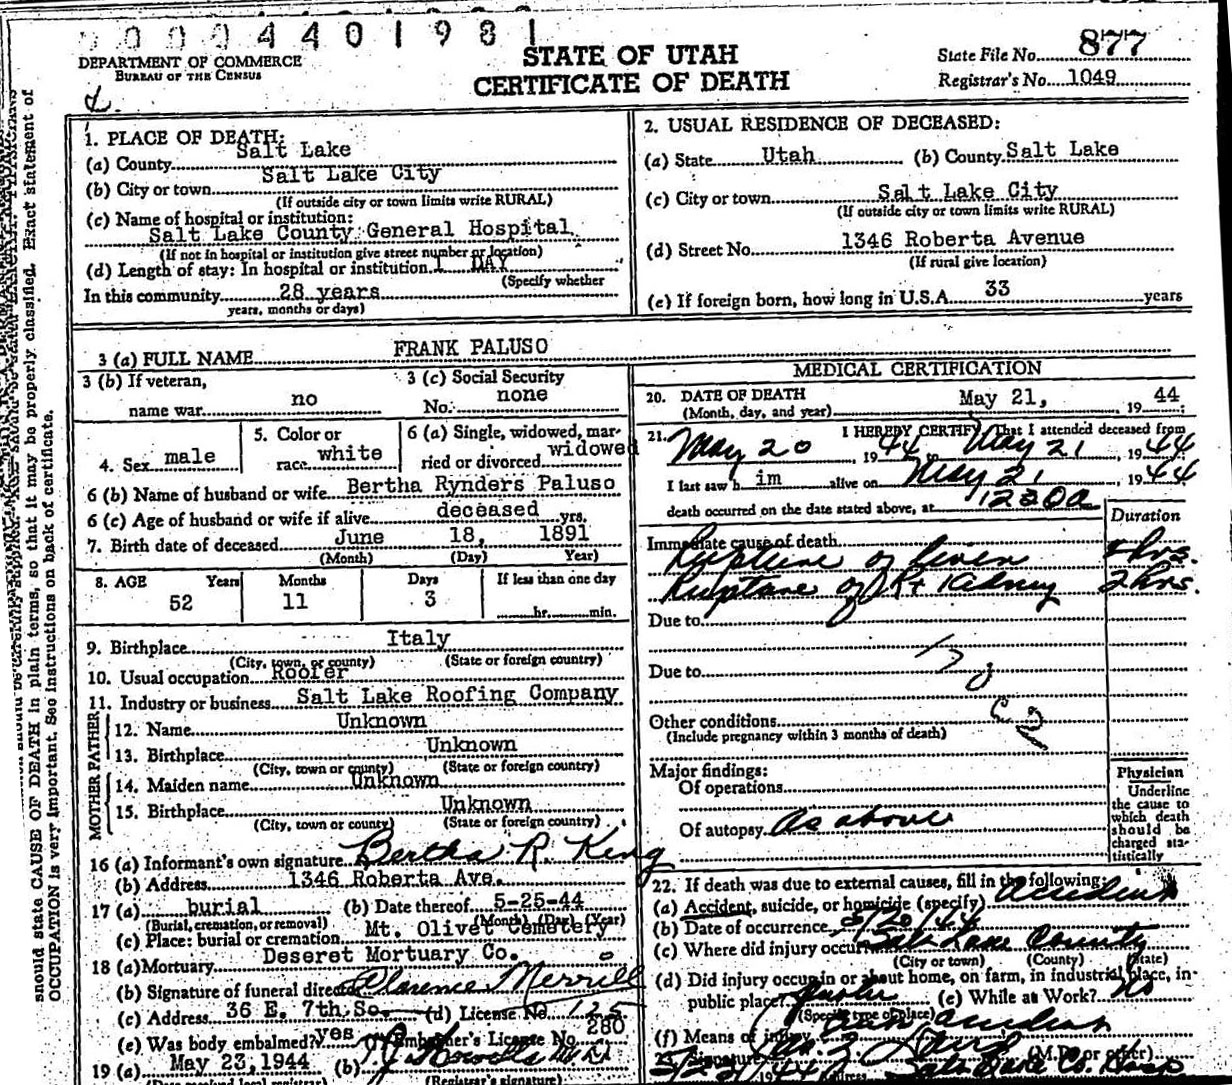 00004401981
DEPARTMENT OF COMMERCE
BUREAU OF THE CENSUS
STATE OF UTAH
CERTIFICATE OF DEATH
State File No. 877
Registrar's No. 1049
1. PLACE OF DEATH:
(a) County Salt Lake
(b) City or town Salt Lake City
(If outside city or town limits write RURAL)
(c) Name of hospital or institution:
Salt Lake County General Hospital
(If not in hospital or institution give street number or location)
(d) Length of stay: In hospital or institution 1 DAY
(Specify whether
In this community 28 years
years, months or days)
2. USUAL RESIDENCE OF DECEASED:
(a) State Utah (b) County Salt Lake
(c) City or town Salt Lake City
(If outside city or town limits write RURAL)
(d) Street No. 1346 Roberta Avenue
(If rural give location)
(e) If foreign born, how long in U.S.A. 33 years
3 (a) FULL NAME FRANK PALUSO
3 (b) If veteran, name war no
3 (c) Social Security No. none
4. Sex male
5. Color or race white
6 (a) Single, widowed, married or divorced widowed
6 (b) Name of husband or wife Bertha Rynders Paluso
6 (c) Age of husband or wife if alive deceased yrs.
7. Birth date of deceased June 18, 1891
(Month) (Day) Year)
8. AGE Years Months Days If less than one day
52 11 3 hr. min.
9. Birthplace Italy
(City, town, or county) (State or foreign country)
10. Usual occupation Roofer
11. Industry or business Salt Lake Roofing Company
FATHER
12. Name Unknown
13. Birthplace Unknown
(City, town or county) (State or foreign country)
MOTHER
14. Maiden name Unknown
15. Birthplace Unknown
(City, town or county) (State or foreign country)
16 (a) Informant's own signature Bertha R. King
(b) Address 1346 Roberta Ave.
17 (a) burial (b) Date thereof 5-25-44
(Burial, cremation, or removal) (Month) (Day) (Year)
(c) Place: burial or cremation Mt. Olivet Cemetery
18 (a) Mortuary Deseret Mortuary Co.
(b) Signature of funeral director Clarence Merrill
(c) Address 36 E. 7th So. (d) License No. 125
(e) Was body embalmed? yes (f) Embalmer's License No. 280
19 (a) May 23, 1944 (b)
(Date received local registrar) (Registrar's signature)
MEDICAL CERTIFICATION
20. DATE OF DEATH May 21, 1944
(Month, day, and year)
21. I HEREBY CERTIFY, That I attended deceased from
May 20 1944 to May 21, 1944
I last saw him alive on May 21, 1944
death occurred on the date stated above, at
Duration
Immediate cause of death
Rupture of liver hrs.
Rupture of Rt Kidney 2 hrs.
Due to
Due to
Other conditions
(Include pregnancy within 3 months of death)
Major findings:
Of operations
Of autopsy As above
Physician
Underline the cause to which death should be charged statistically
22. If death was due to external causes, fill in the following:
(a) Accident, suicide, or homicide (specify) Accident
(b) Date of occurrence 5/20/44
(c) Where did injury occur? Salt Lake County
(City or town) (County) (State)
(d) Did injury occur in or about home, on farm, in industrial place, in public place? (e) While at Work? No
(Specify type of place)
(f) Means of injury Auto Accident
23. Signature (M.D. or other)
Address Salt Lake Co. Hosp
should state CAUSE OF DEATH in plain terms, so that it may be properly classified. Exact statement of
OCCUPATION is very important. See instructions on back of certificate.